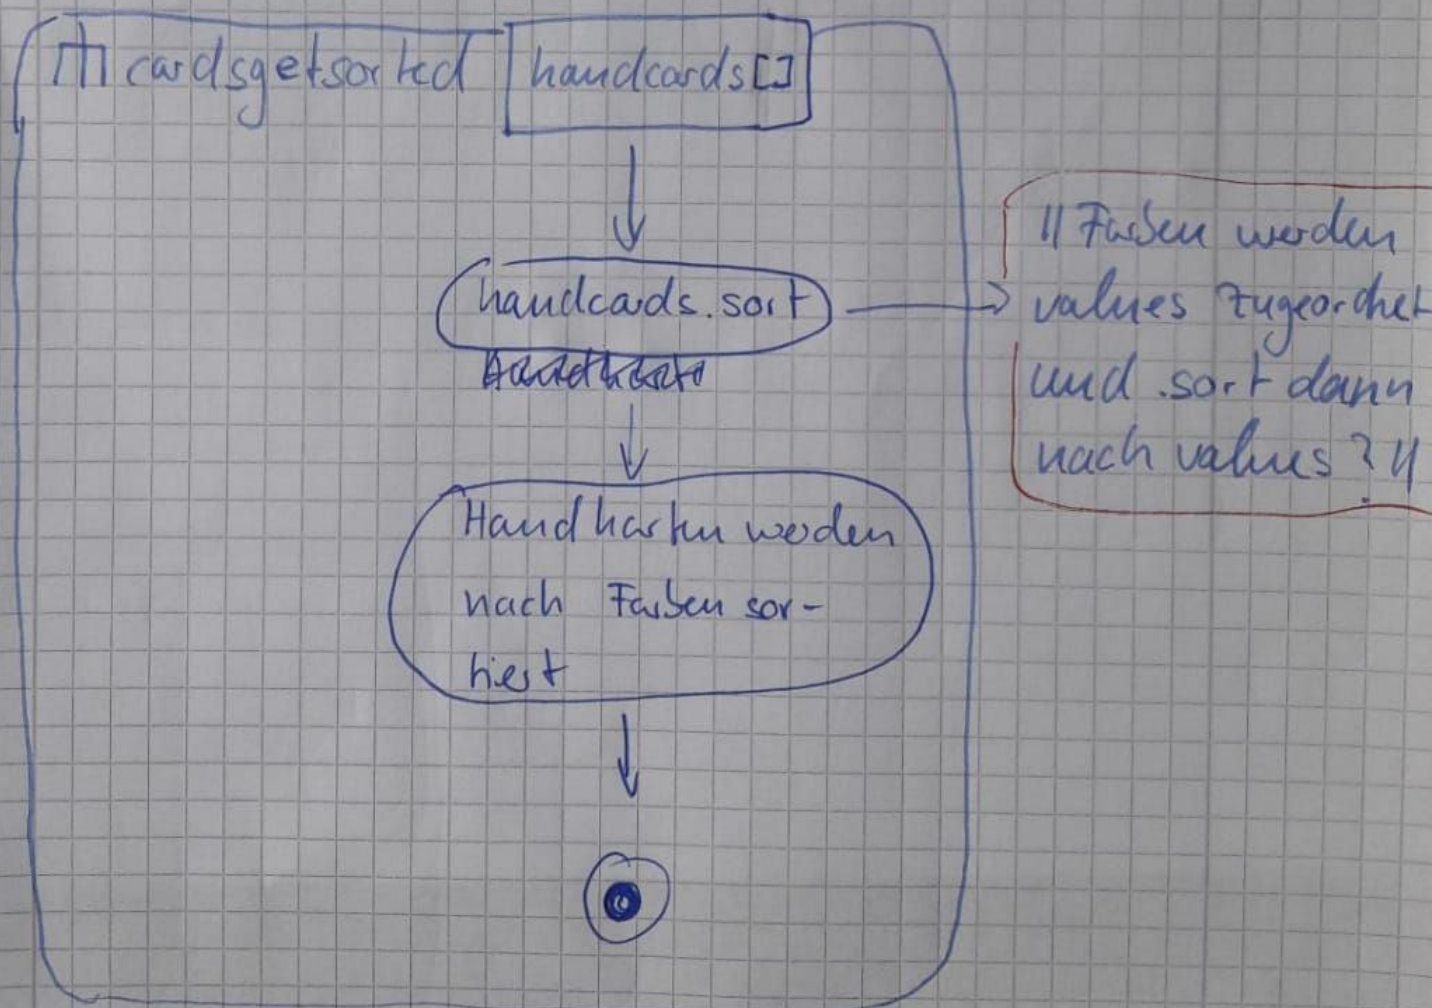 cardsgetsorted handcards[]
handcards.sort
Handkarten werden
nach Farben sor-
tiert
// Farben werden
values zugeordnet
und .sort dann
nach values? //